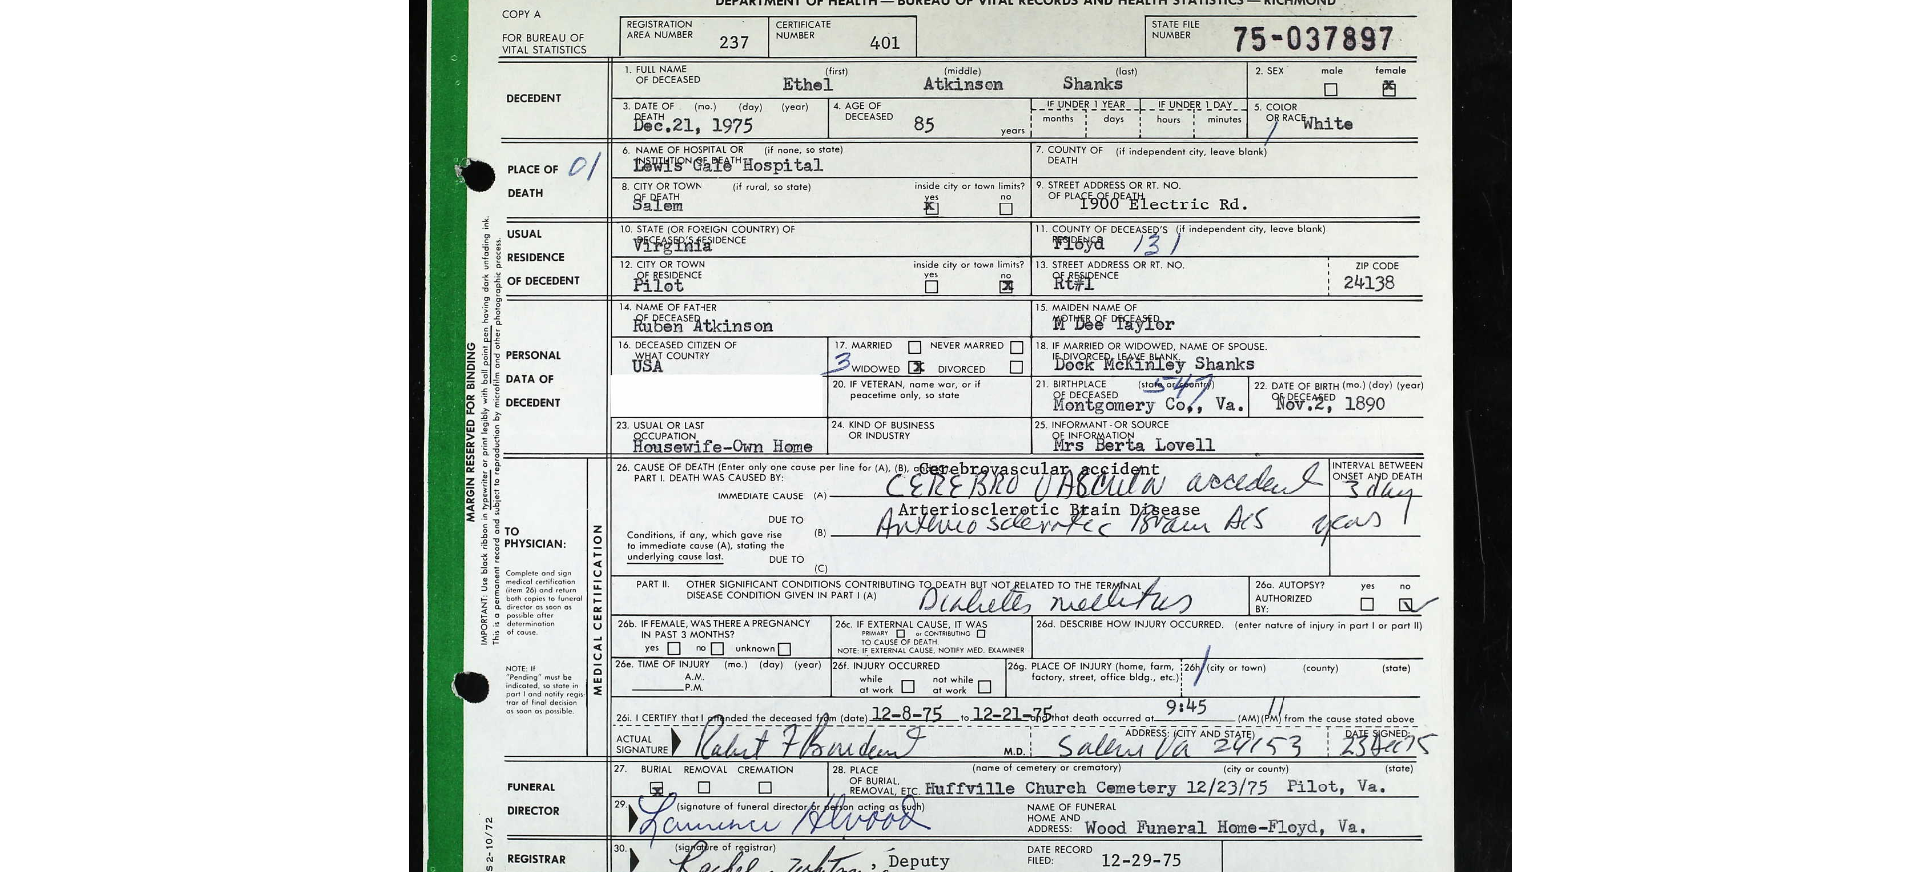 DEPARTMENT OF HEALTH — BUREAU OF VITAL RECORDS AND HEALTH STATISTICS — RICHMOND
COPY A
FOR BUREAU OF VITAL STATISTICS
REGISTRATION AREA NUMBER 237 CERTIFICATE NUMBER 401 STATE FILE NUMBER 75-037897
DECEDENT
1. FULL NAME OF DECEASED (first) Ethel (middle) Atkinson (last) Shanks 2. SEX male female X
3. DATE OF DEATH (mo.) (day) (year) Dec.21, 1975 4. AGE OF DECEASED 85 years IF UNDER 1 YEAR months days IF UNDER 1 DAY hours minutes 5. COLOR OR RACE White
PLACE OF DEATH 01
6. NAME OF HOSPITAL OR INSTITUTION OF DEATH (if none, so state) Lewis Gale Hospital 7. COUNTY OF DEATH (if independent city, leave blank)
8. CITY OR TOWN OF DEATH (if rural, so state) Salem inside city or town limits? yes X no 9. STREET ADDRESS OR RT. NO. OF PLACE OF DEATH 1900 Electric Rd.
USUAL RESIDENCE OF DECEDENT
10. STATE (OR FOREIGN COUNTRY) OF DECEASED'S RESIDENCE Virginia 11. COUNTY OF DECEASED'S RESIDENCE (if independent city, leave blank) Floyd 131
12. CITY OR TOWN OF RESIDENCE Pilot inside city or town limits? yes no X 13. STREET ADDRESS OR RT. NO. OF RESIDENCE Rt#1 ZIP CODE 24138
PERSONAL DATA OF DECEDENT
14. NAME OF FATHER OF DECEASED Ruben Atkinson 15. MAIDEN NAME OF MOTHER OF DECEASED M Dee Taylor
16. DECEASED CITIZEN OF WHAT COUNTRY USA 17. MARRIED NEVER MARRIED 3 WIDOWED X DIVORCED 18. IF MARRIED OR WIDOWED, NAME OF SPOUSE. IF DIVORCED, LEAVE BLANK. Dock McKinley Shanks
20. IF VETERAN, name war, or if peacetime only, so state 21. BIRTHPLACE OF DECEASED (state or country) 547 Montgomery Co,, Va. 22. DATE OF BIRTH (mo.) (day) (year) OF DECEASED Nov.2, 1890
23. USUAL OR LAST OCCUPATION Housewife-Own Home 24. KIND OF BUSINESS OR INDUSTRY 25. INFORMANT - OR SOURCE OF INFORMATION Mrs Berta Lovell
MARGIN RESERVED FOR BINDING
IMPORTANT: Use black ribbon in typewriter or print legibly with ball point pen having dark unfading ink.
This is a permanent record and subject to reproduction by microfilm and other photographic process.
TO PHYSICIAN:
Complete and sign medical certification (item 26) and return both copies to funeral director as soon as possible after determination of cause.
NOTE: If "Pending" must be indicated, so state in part I and notify registrar of final decision as soon as possible.
MEDICAL CERTIFICATION
26. CAUSE OF DEATH (Enter only one cause per line for (A), (B), Cerebrovascular accident INTERVAL BETWEEN ONSET AND DEATH
PART I. DEATH WAS CAUSED BY:
IMMEDIATE CAUSE (A) CEREBRO VASCULAR accedent 3 day
Arteriosclerotic Brain Disease
DUE TO (B) Arteriosclerotic Brain DIS years
Conditions, if any, which gave rise to immediate cause (A), stating the underlying cause last.
DUE TO (C)
PART II. OTHER SIGNIFICANT CONDITIONS CONTRIBUTING TO DEATH BUT NOT RELATED TO THE TERMINAL DISEASE CONDITION GIVEN IN PART I (A) Diabetes mellitus 26a. AUTOPSY? yes no AUTHORIZED BY:
26b. IF FEMALE, WAS THERE A PREGNANCY IN PAST 3 MONTHS? yes no unknown 26c. IF EXTERNAL CAUSE, IT WAS PRIMARY or CONTRIBUTING TO CAUSE OF DEATH. NOTE: IF EXTERNAL CAUSE, NOTIFY MED. EXAMINER 26d. DESCRIBE HOW INJURY OCCURRED. (enter nature of injury in part I or part II)
26e. TIME OF INJURY (mo.) (day) (year) A.M. P.M. 26f. INJURY OCCURRED while at work not while at work 26g. PLACE OF INJURY (home, farm, factory, street, office bldg., etc.) 26h (city or town) (county) (state)
26i. I CERTIFY that I attended the deceased from (date) 12-8-75 to 12-21-75 and that death occurred at 9:45 (AM)(PM) from the cause stated above
ACTUAL SIGNATURE M.D. ADDRESS: (CITY AND STATE) Salem Va 24153 DATE SIGNED: 23 Dec 75
FUNERAL DIRECTOR
27. BURIAL X REMOVAL CREMATION 28. PLACE OF BURIAL, REMOVAL, ETC. (name of cemetery or crematory) (city or county) (state) Huffville Church Cemetery 12/23/75 Pilot, Va.
29. (signature of funeral director or person acting as such) NAME OF FUNERAL HOME AND ADDRESS: Wood Funeral Home-Floyd, Va.
REGISTRAR
30. (signature of registrar) , Deputy DATE RECORD FILED: 12-29-75
S 2-10/72